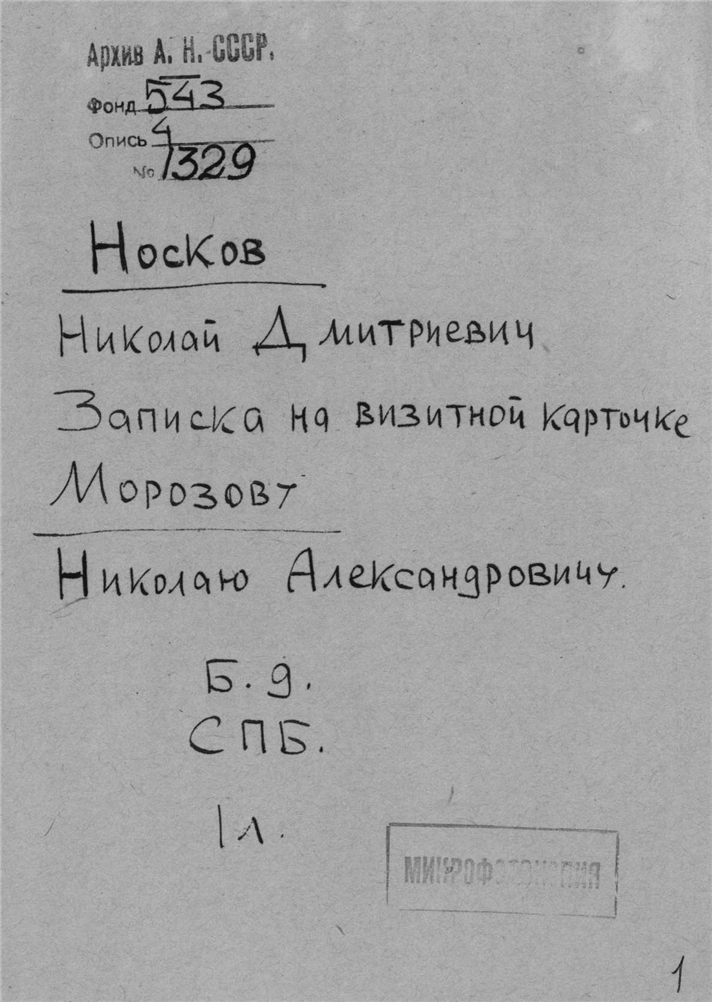 Архив А. Н. СССР.
Фонд 543
Опись 4
№ 1329
Носков
Николай Дмитриевич
Записка на визитной карточке
Морозову
Николаю Александровичу.
Б. д.
СПБ.
1 л.
МИКРОФОТОКОПИЯ
1